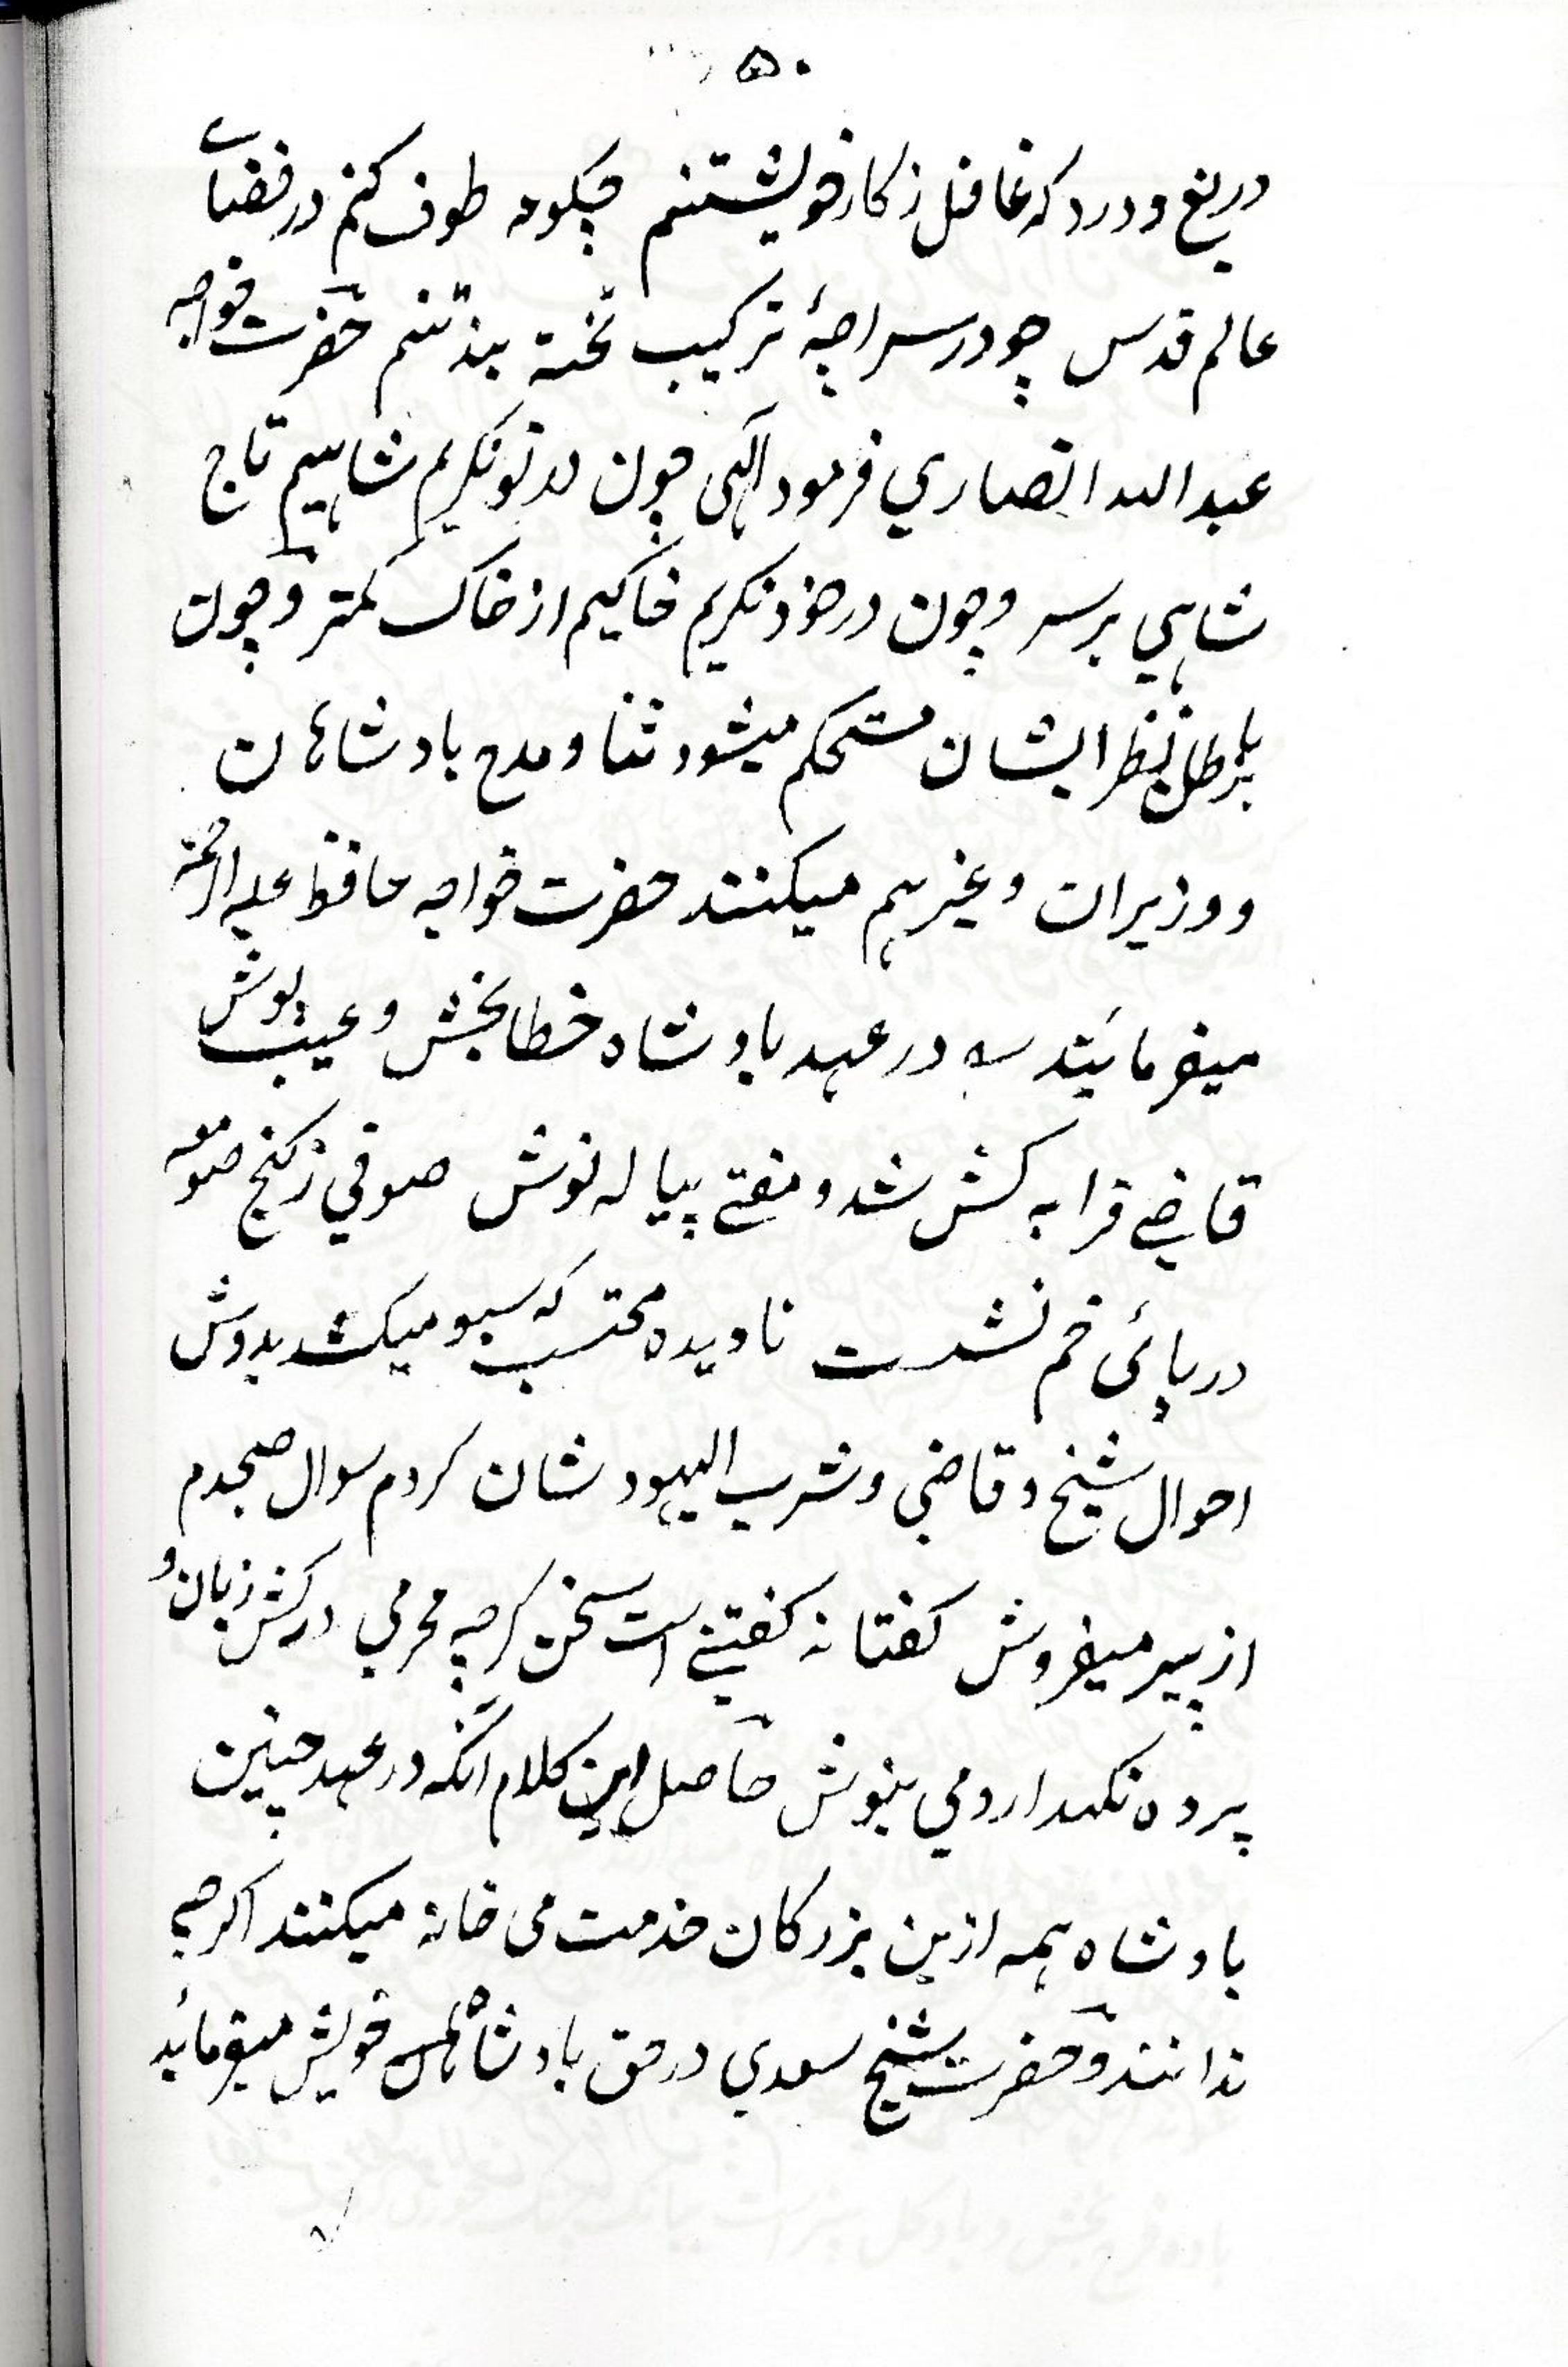 ۵۰
دریغ و درد که غافل ز کار خویشتنم چکونه طوف کنم در فضاے
عالم قدس چو در سراچهٔ ترکیب تخته بند تنم حضرت خواجه
عبد الله انصاري فرمود الهی چون در تو نکریم شاهیم تاج
شاهي بر سر و چون در خود نکریم خاکیم از خاک کمتر و چون
نظر ایشان مستحکم میشود ثنا و مدح بادشاهان
و وزیران و غیرهم میکنند حضرت خواجه حافظ علیه الرحمة
میفرمایند در عهد بادشاه خطا بخش و عیب پوش
قاضے قرابه کش شد و مفتے پیاله نوش صوفي ز کنج صومعه
در پائی خم نشست نادیده محتسب که سبو میکشد بدوش
احوال شیخ و قاضي و شرب الیهود شان کردم سوال صبحدم
از پیر میفروش کفتا نه کفتنے است سخن کرچه محرمي درکش زبان و
پرده نکهدار و مي بنوش حاصل این کلام آنکه در عهد چنین
بادشاه همه ازین بزرکان خدمت می خانه میکنند اکرچه
ندانند و حضرت شیخ سعدي در حق بادشاه خویش میفرماید